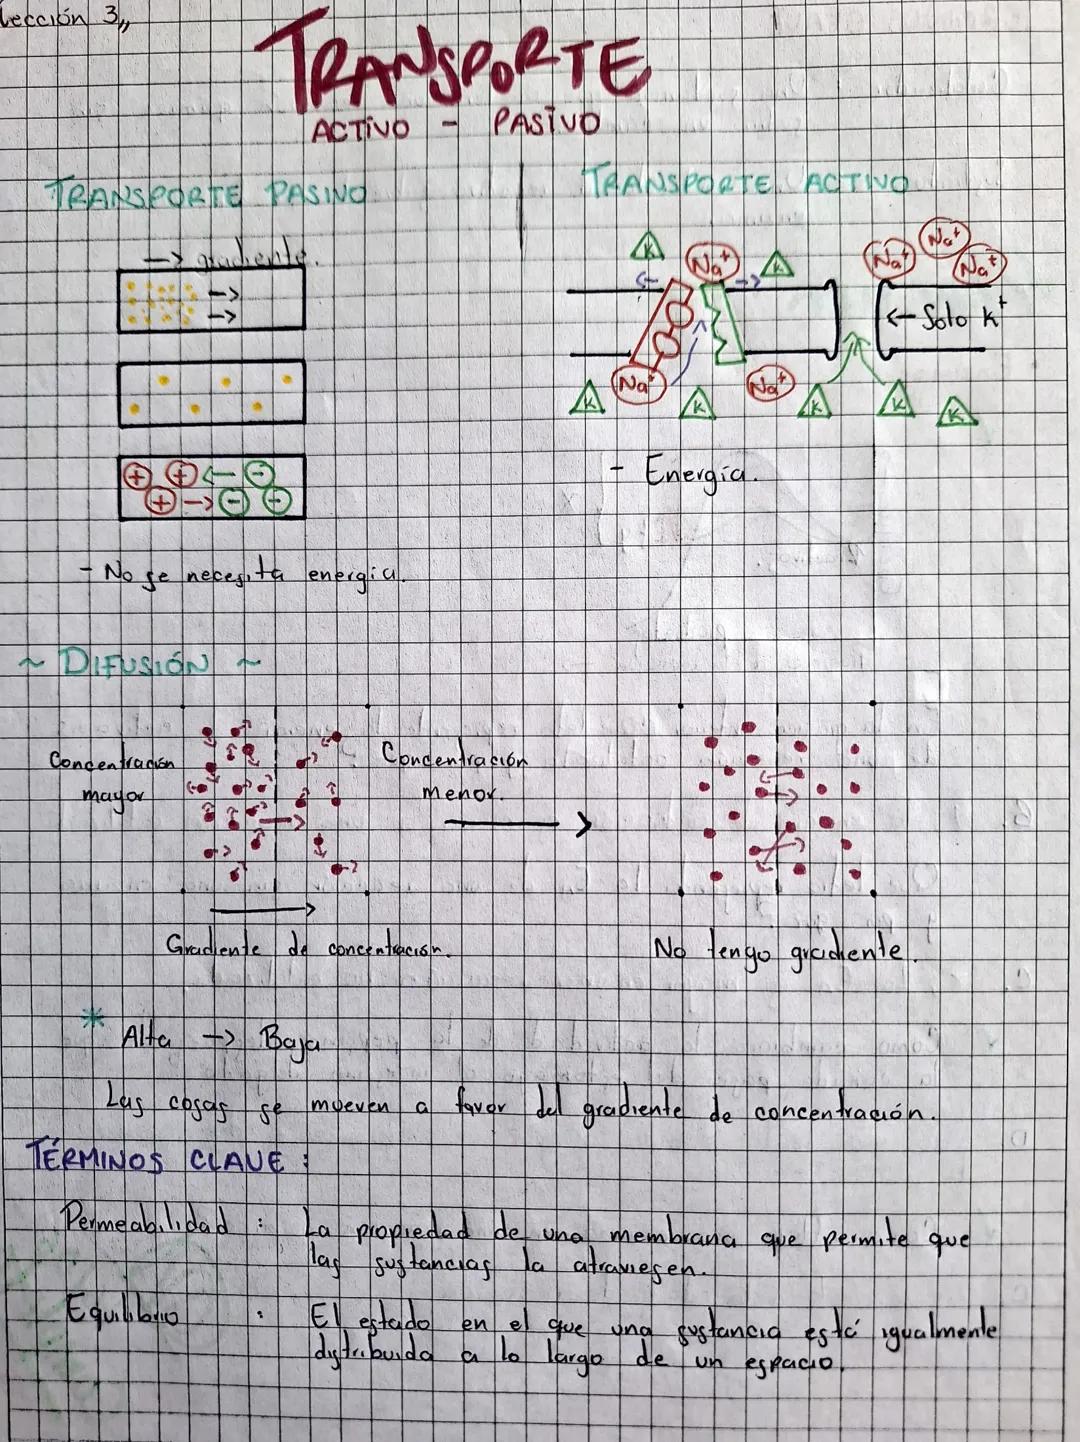 Lección 3,,
TRANSPORTE
ACTIVO - PASIVO
TRANSPORTE PASIVO
-> gradiente.
+ + ← -
+ -> - -
- No se necesita energía.
TRANSPORTE ACTIVO
K Na+ K Na+ Na+ Na+
← Solo K+
K Na+ K Na+ K K K
- Energía.
~ DIFUSIÓN ~
Concentración
mayor
Concentración
menor.
Gradiente de concentración.
No tengo gradiente.
* Alta -> Baja
Las cosas se mueven a favor del gradiente de concentración.
TÉRMINOS CLAVE :
Permeabilidad : La propiedad de una membrana que permite que
las sustancias la atraviesen.
Equilibrio : El estado en el que una sustancia está igualmente
distribuida a lo largo de un espacio.